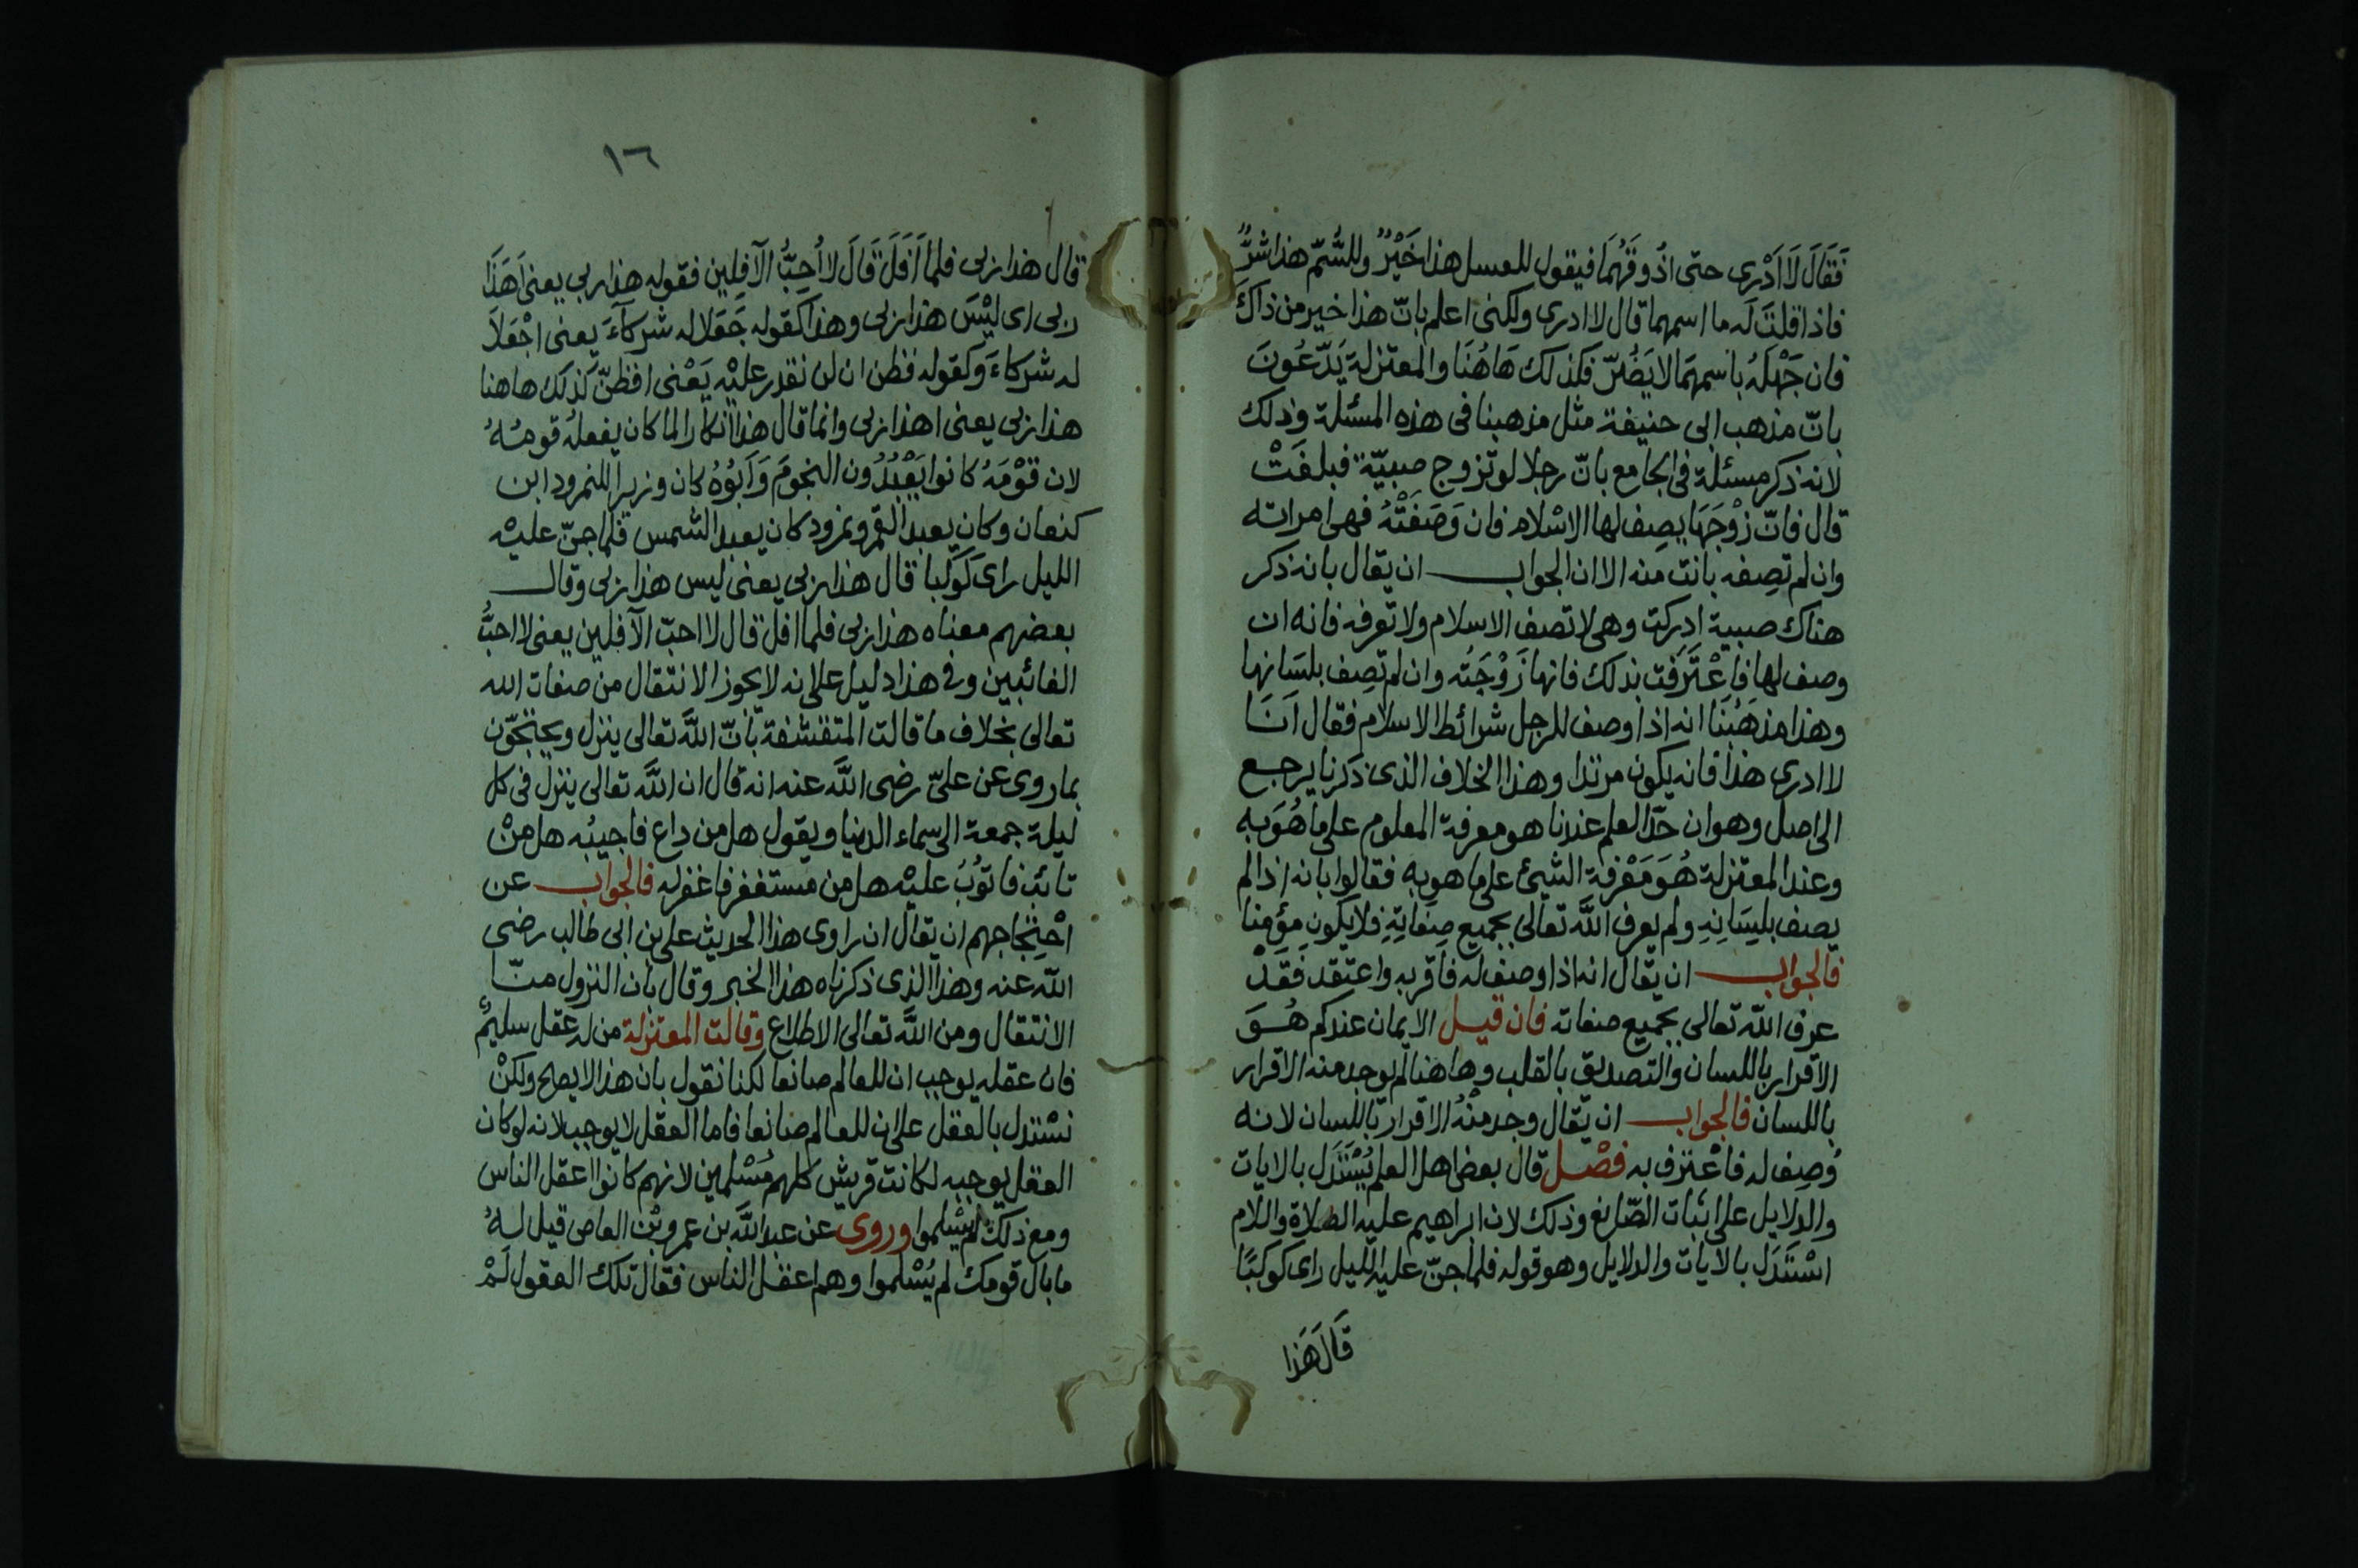 فَقَالَ لَا اَدْرِى حتى اذُوقَهُمَا فيقول للعسل هذا خَيْرٌ وللسُّمّ هذا شَرٌّ
فاذا قلتَ لَه ما اسمهما قال لا ادرى ولكنى اعلم بانّ هذا خير من ذاكَ
فان جَهْلَهُ باسمهمَا لا يَضُرّ فكذلك هَاهُنَا والمعتزلة يَدّعُونَ
بانّ مذهب ابى حنيفة مثل مذهبنا فى هذه المسئلة وذلك
لانه ذكر مسئلة فى الجامع بانّ رجلا لو تزوج صبيّة فبلغَتْ
قال فانّ زوْجَهَا يصِف لها الاسْلام فان وَصَفَتْهُ فهى امراته
وان لم تصِفه بانت منه الا ان الجواب ان يقال بانه ذكر
هناك صبية ادركت وهى لا تصف الاسلام ولا تعرفه فانه ان
وصف لها فاعْتَرَفت بذلك فانها زَوْجَتُه وان لم تصِف بلسَانها
وهذا مذهَبُنَا انه اذا وصف للرجل شرائط الاسلام فقال اَنَا
لا ادرى هذا فانه يكون مرتدا وهذا الخلاف الذى ذكرنا يرجع
الى اصل وهو ان حدّ العلم عندنا هو معرفة المعلوم على ما هُوَ به
وعند المعتزلة هُوَ مَعْرفة الشيئ على ما هو به فقالوا بانه اذا لم
يصف بلِسَانِهِ ولم يعرف اللّٰه تعالى بجميع صِفَاتِهِ فلا يكون مؤمنا
فالجواب ان يقال انه اذا وصف له فاقر به واعتقد فَقَدْ
عرف اللّٰه تعالى بجميع صفاته فان قيل الايمان عندكم هُوَ
الاقرار باللسان والتصديق بالقلب وهاهنا لم يوجد منه الاقرار
باللسان فالجواب ان يقال وجد منْهُ الاقرار باللسان لانه
وُصِف له فاعْترف به فصْل قال بعض اهل العلم يُسْتَدَل بالايات
والدلايل على اثبات الصّانع وذلك لان ابراهيم عليه الصلاة والسلام
اسْتَدَل بالايات والدلايل وهو قوله فلما جنّ عليه الليل راى كوكبًا
قَالَ هَذا
١٦
قال هذا ربى فلما اَفَلَ قَالَ لا اُحِبُّ الآفِلِين فقوله هذا ربى يعنى اَهَذَا
ربى اى ليْسَ هذا ربى وهذا كقوله جَعَلا له شركآءَ يعنى اجْعَلَا
له شركاءَ وكقوله فظن ان لن نقدر عليْه يَعْنى افظنّ كذلك هاهنا
هذا ربى يعنى اهذا ربى وانما قال هذا انكارا لما كان يفعله قومُهُ
لان قوْمَهُ كانوا يَعْبُدُون النجومَ وَاَبُوْهُ كان وزيرا للنمرود ابن
كنعان وكان يعبد القمر ونمرود كان يعبد الشمس فلما جنّ عليْه
الليل راى كوكبا قال هذا ربى يعنى ليس هذا ربى وقال
بعضهم معناه هذا ربى فلما افل قال لا احبّ الآفِلين يعنى لا احبُّ
الغائبين وفى هذا دليل على انه لا يجوز الانتقال من صفات اللّٰه
تعالى بخلاف ما قالت المتقشفة بانّ اللّٰه تعالى ينزل ويحتجّون
بما روى عن علىّ رضى اللّٰه عنه انه قال ان اللّٰه تعالى ينزل فى كل
ليلة جمعة الى سماء الدنيا ويقول هل من داع فاجيبُه هل منْ
تائب فاتوُبُ عليْه هل من مستغفر فاغفر له فالجواب عن
احْتِجَاجهم ان يقال ان راوى هذا الحديث على بن ابى طالب رضى
اللّٰه عنه وهذا الذى ذكرناه هذا الخبر وقال بان النزول منّا
الانتقال ومن اللّٰه تعالى الاطلاع وقالت المعتزلة من له عقل سليمٌ
فان عقله يوجب ان للعالم صانعا لكنا نقول بان هذا لا يصح ولكنْ
نسْتدل بالعقل على ان للعالم صانعا فاما العقل لا يوجب لانه لو كان
العقل يوجبه لكانت قريش كلهم مُسْلمين لانهم كانوا اعقل الناس
ومع ذلك لم يسْلموا وروى عن عبد اللّٰه بن عمرو بْن العاص قيل لهُ
ما بال قومك لم يُسْلموا وهم اعقل الناس فقال تلك العقول لَمْ